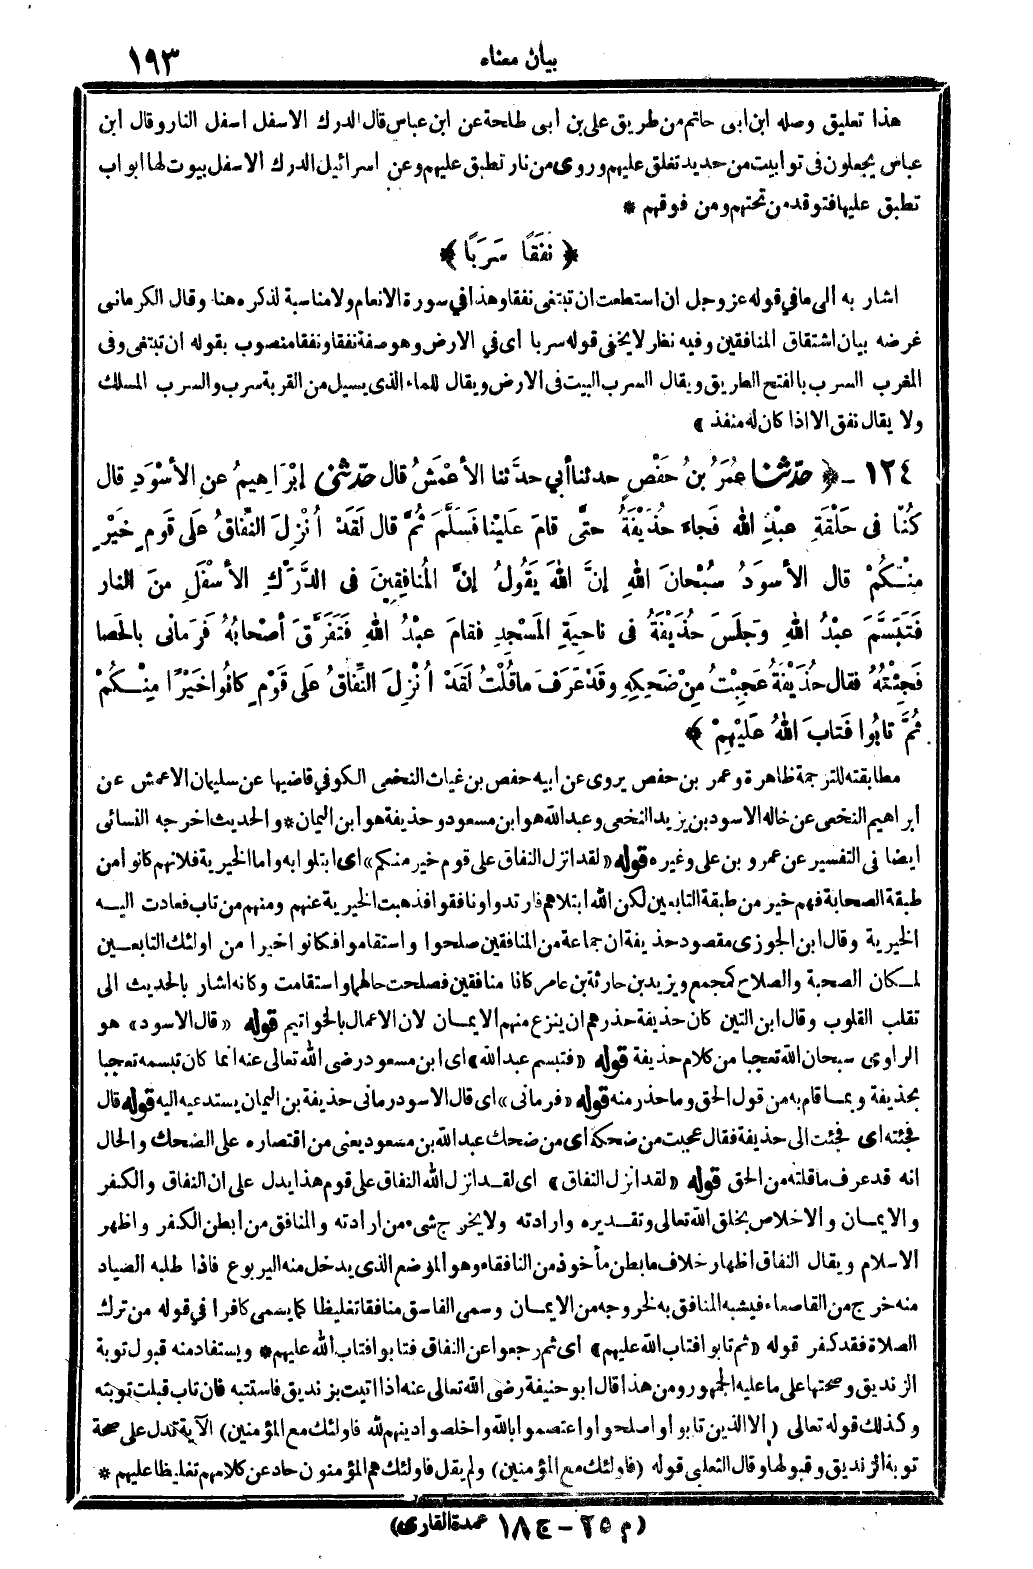 بيان معناه ١٩٣
هذا تعليق وصله ابن ابى حاتم من طريق على بن أبى طلحة عن ابن عباس قال الدرك الاسفل اسفل النار وقال ابن
عباس يجعلون فى توابيت من حديد تغلق عليهم وروى من نار تطبق عليهم وعن اسرائيل الدرك الاسفل بيوت لها ابواب
تطبق عليها فتوقد من تحتهم ومن فوقهم *
﴿ نَفَقًا سَرَبًا ﴾
اشار به الى ما في قوله عز وجل ان استطعت ان تبتغى نفقا وهذا في سورة الانعام ولا مناسبة لذكره هنا وقال الكرمانى
غرضه بيان اشتقاق المنافقين وفيه نظر لا يخفى قوله سربا أى في الارض وهو صفة نفقا ونفقا منصوب بقوله ان تبتغى وفى
المغرب السرب بالفتح الطريق ويقال السرب البيت فى الارض ويقال للماء الذى يسيل من القربة سرب والسرب المسلك
ولا يقال نفق الا اذا كان له منفذ ﴾
١٢٤ - ﴿ حدّثنا عُمَرُ بنُ حَفْصٍ حدثنا أبي حدَّثنا الأعْمَشُ قال حدّثنى إبْرَاهِيمُ عنِ الأسْوَدِ قال
كُنَّا فى حَلْقَةِ عبْدِ الله فَجاءَ حُذَيْفَةُ حتَّى قامَ عَلَيْنا فَسَلَّمَ ثُمَّ قال لَقَدْ أُنْزِلَ النِّفاقُ علَى قَومٍ خَيْرٍ
مِنْكُمْ قال الأسوَدُ سُبْحانَ اللهِ إنَّ اللهَ يَقُولُ إنَّ المُنافِقِينَ فى الدَّرْكِ الأسْفَلِ مِنَ النار
فَتَبَسَّمَ عبْدُ اللهِ وَجلَسَ حُذَيْفَةُ فى ناحِيَةِ المَسْجِدِ فقامَ عبْدُ اللهِ فَتَفَرَّقَ أصْحابُهُ فَرَمانى بالحَصا
فَجِئْتُهُ فقال حُذَيْفَةُ عَجِبْتُ مِنْ ضَحِكِهِ وقَدْ عَرَفَ ما قُلْتُ لَقَدْ أُنْزِلَ النِّفاقُ علَى قَوْمٍ كانُوا خَيْرًا مِنْكُمْ
ثُمَّ تابُوا فَتابَ اللهُ عَلَيْهِمْ ﴾
مطابقته للترجمة ظاهرة وعمر بن حفص يروى عن ابيه حفص بن غياث النخعى الكوفي قاضيها عن سليمان الاعمش عن
ابراهيم النخعى عن خاله الاسود بن يزيد النخعى وعبد الله هو ابن مسعود وحذيفة هو ابن اليمان * والحديث اخرجه النسائى
ايضا فى التفسير عن عمرو بن على وغيره قوله «لقد انزل النفاق على قوم خير منكم» اى ابتلوا به واما الخيرية فلانهم كانوا من
طبقة الصحابة فهم خير من طبقة التابعين لكن الله ابتلاهم فارتدوا ونافقوا فذهبت الخيرية عنهم ومنهم من تاب فعادت اليه
الخيرية وقال ابن الجوزى مقصود حذيفة ان جماعة من المنافقين صلحوا واستقاموا فكانوا خيرا من اولئك التابعين
لمكان الصحبة والصلاح كمجمع ويزيد بن حارثة بن عامر كانا منافقين فصلحت حالهما واستقامت وكانه اشار بالحديث الى
تقلب القلوب وقال ابن التين كان حذيفة حذرهم ان ينزع منهم الايمان لان الاعمال بالخواتيم قوله «قال الاسود» هو
الراوى سبحان الله تعجبا من كلام حذيفة قوله «فتبسم عبد الله» اى ابن مسعود رضى الله تعالى عنه انما كان تبسمه تعجبا
بحذيفة وبما قام به من قول الحق وما حذر منه قوله «فرمانى» اى قال الاسود رمانى حذيفة بن اليمان يستدعيه اليه قوله قال
فجئته اى فجئت الى حذيفة فقال عجبت من ضحكه اى من ضحك عبد الله بن مسعود يعنى من اقتصاره على الضحك والحال
انه قد عرف ما قلته من الحق قوله «لقد انزل النفاق» اى لقد انزل الله النفاق على قوم هذا يدل على ان النفاق والكفر
والايمان والاخلاص بخلق الله تعالى وتقديره وارادته ولا يخرج شىء من ارادته والمنافق من ابطن الكفر واظهر
الاسلام ويقال النفاق اظهار خلاف ما بطن مأخوذ من النافقاء وهو الموضع الذى يدخل منه اليربوع فاذا طلبه الصياد
منه خرج من القاصعاء فيشبه المنافق به لخروجه من الايمان وسمى الفاسق منافقا تغليظا كما يسمى كافرا في قوله من ترك
الصلاة فقد كفر قوله «ثم تابوا فتاب الله عليهم» اى ثم رجعوا عن النفاق فتابوا فتاب الله عليهم * ويستفاد منه قبول توبة
الزنديق وصحتها على ما عليه الجمهور ومن هذا قال ابو حنيفة رضى الله تعالى عنه اذا اتيت بزنديق فاستتبه فان تاب قبلت توبته
وكذلك قوله تعالى (الا الذين تابوا واصلحوا واعتصموا بالله واخلصوا دينهم لله فاولئك مع المؤمنين) الآية تدل على صحة
توبة الزنديق وقبولها وقال الثعلبى قوله (فاولئك مع المؤمنين) ولم يقل فاولئك هم المؤمنون حاد عن كلامهم تغليظا عليهم *
(م ٢٥ - ج ١٨ عمدة القارى)